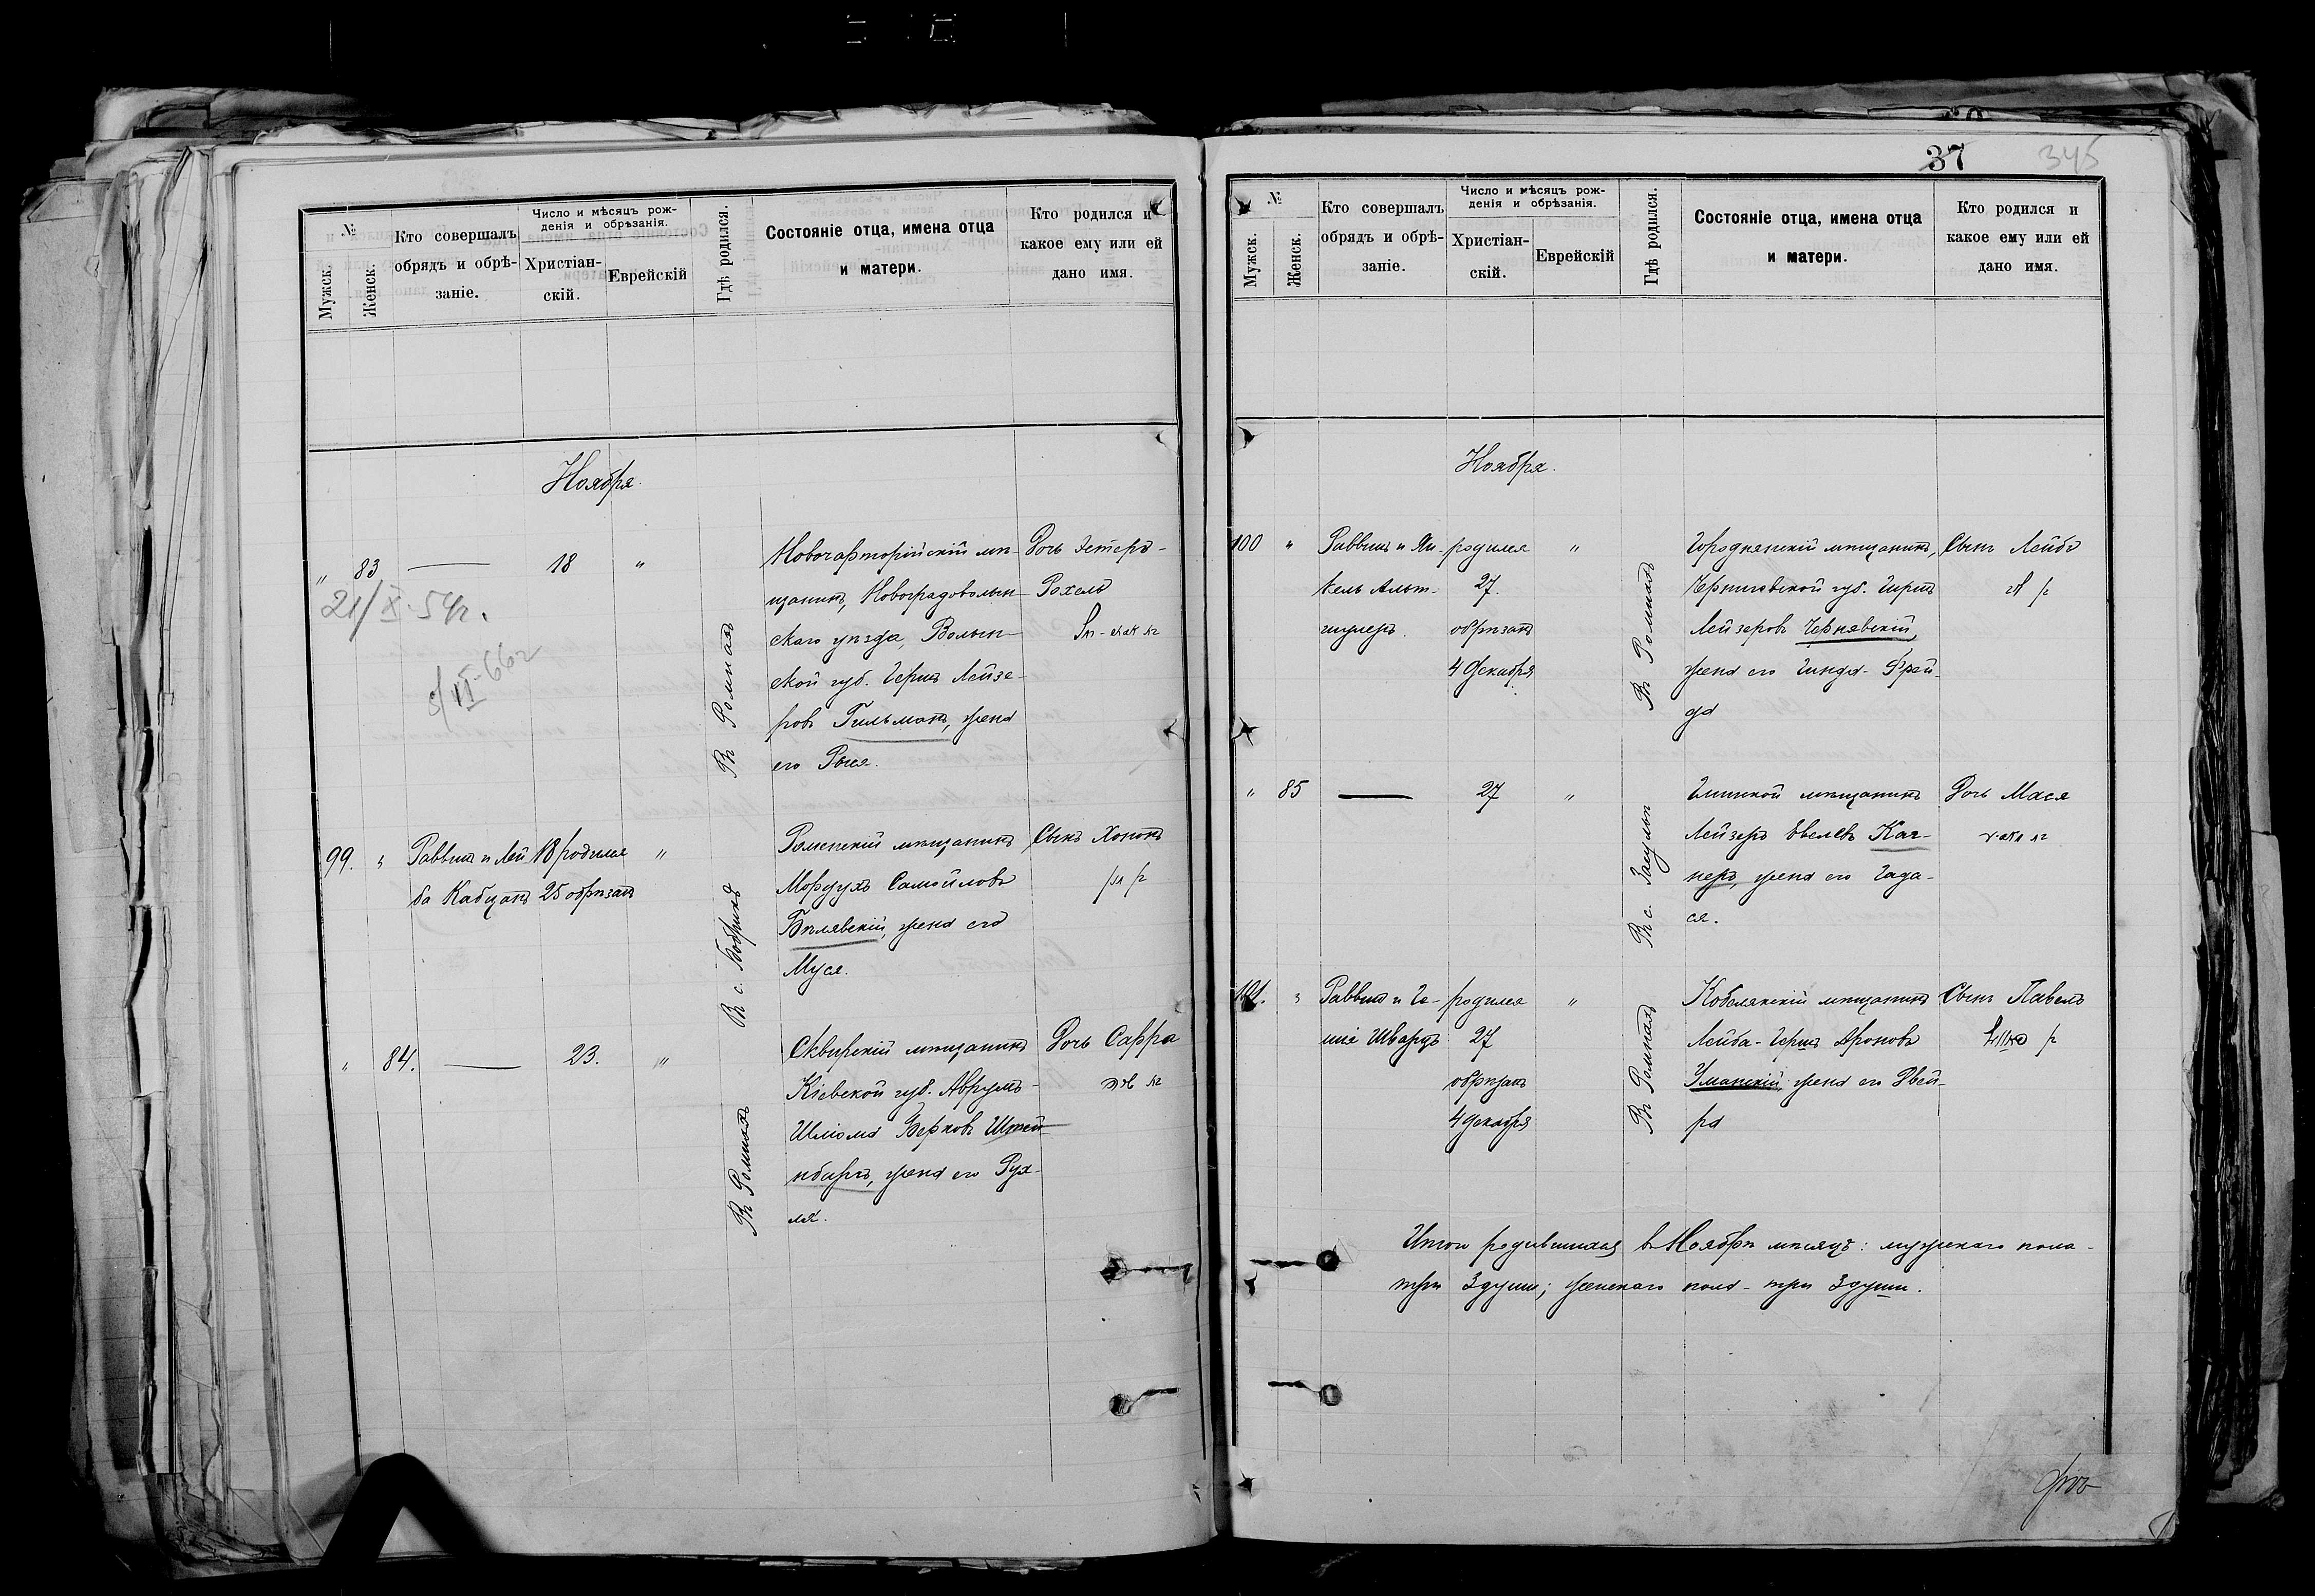 №
Мужск.
Женск.
Кто совершалъ
обрядъ и обрѣ-
заніе.
Число и мѣсяцъ рож-
денія и обрѣзанія.
Христіан-
скій.
Еврейскій
Гдѣ родился.
Состояніе отца, имена отца
и матери.
Кто родился и
какое ему или ей
дано имя.
Ноября.
" 83 — 18 "
21/X-54г.
Въ Ромнахъ
Новочарторійскій мѣ-
щанинъ, Новоградволын-
скаго уѣзда, Волын-
ской губ. Герцъ Лейзе-
ровъ Гильманъ, жена
его Рыся.
Дочь Эстеръ-
Рохель
99. " Раввинъ и Лей 18 родился "
ба Кабцанъ 25 обрѣзанъ
Въ с. Бобрикъ
Роменскій мѣщанинъ
Мордухъ Самойловъ
Бѣлявскій, жена его
Муся.
Сынъ Хононъ
" 84. — 23. "
Въ Ромнахъ
Сквирскій мѣщанинъ
Кіевской губ. Аврумъ-
Шліома Берковъ Штей-
нбаргъ, жена его Рух-
ля.
Дочь Сарра
37
345
№
Мужск.
Женск.
Кто совершалъ
обрядъ и обрѣ-
заніе.
Число и мѣсяцъ рож-
денія и обрѣзанія.
Христіан-
скій.
Еврейскій
Гдѣ родился.
Состояніе отца, имена отца
и матери.
Кто родился и
какое ему или ей
дано имя.
Ноября.
100 " Раввинъ и Ян-
кель Альт-
шулеръ.
родился "
27.
обрѣзанъ
4 Декабря
Въ Ромнахъ
Городнянскій мѣщанинъ,
Черниговской губ. Гиршъ
Лейзеровъ Чернявскій,
жена его Гинда-Фрей-
да
Сынъ Лейба
" 85 — 27 "
Въ с.
Глинскій мѣщанинъ
Лейзеръ Евелевъ Каг-
неръ, жена его Гада-
ся.
Дочь Мася
101. " Раввинъ и Ге-
шія Шварцъ
родился "
27
обрѣзанъ
4 декабря
Въ Ромнахъ
Кобелякскій мѣщанинъ
Лейба-Гершъ Ароновъ
Уманскій, жена его Двей-
ра
Сынъ Павелъ
Итого родившихся въ Ноябрѣ мѣсяцѣ: мужскаго пола-
три 3 души; женскаго пола - три 3 души.